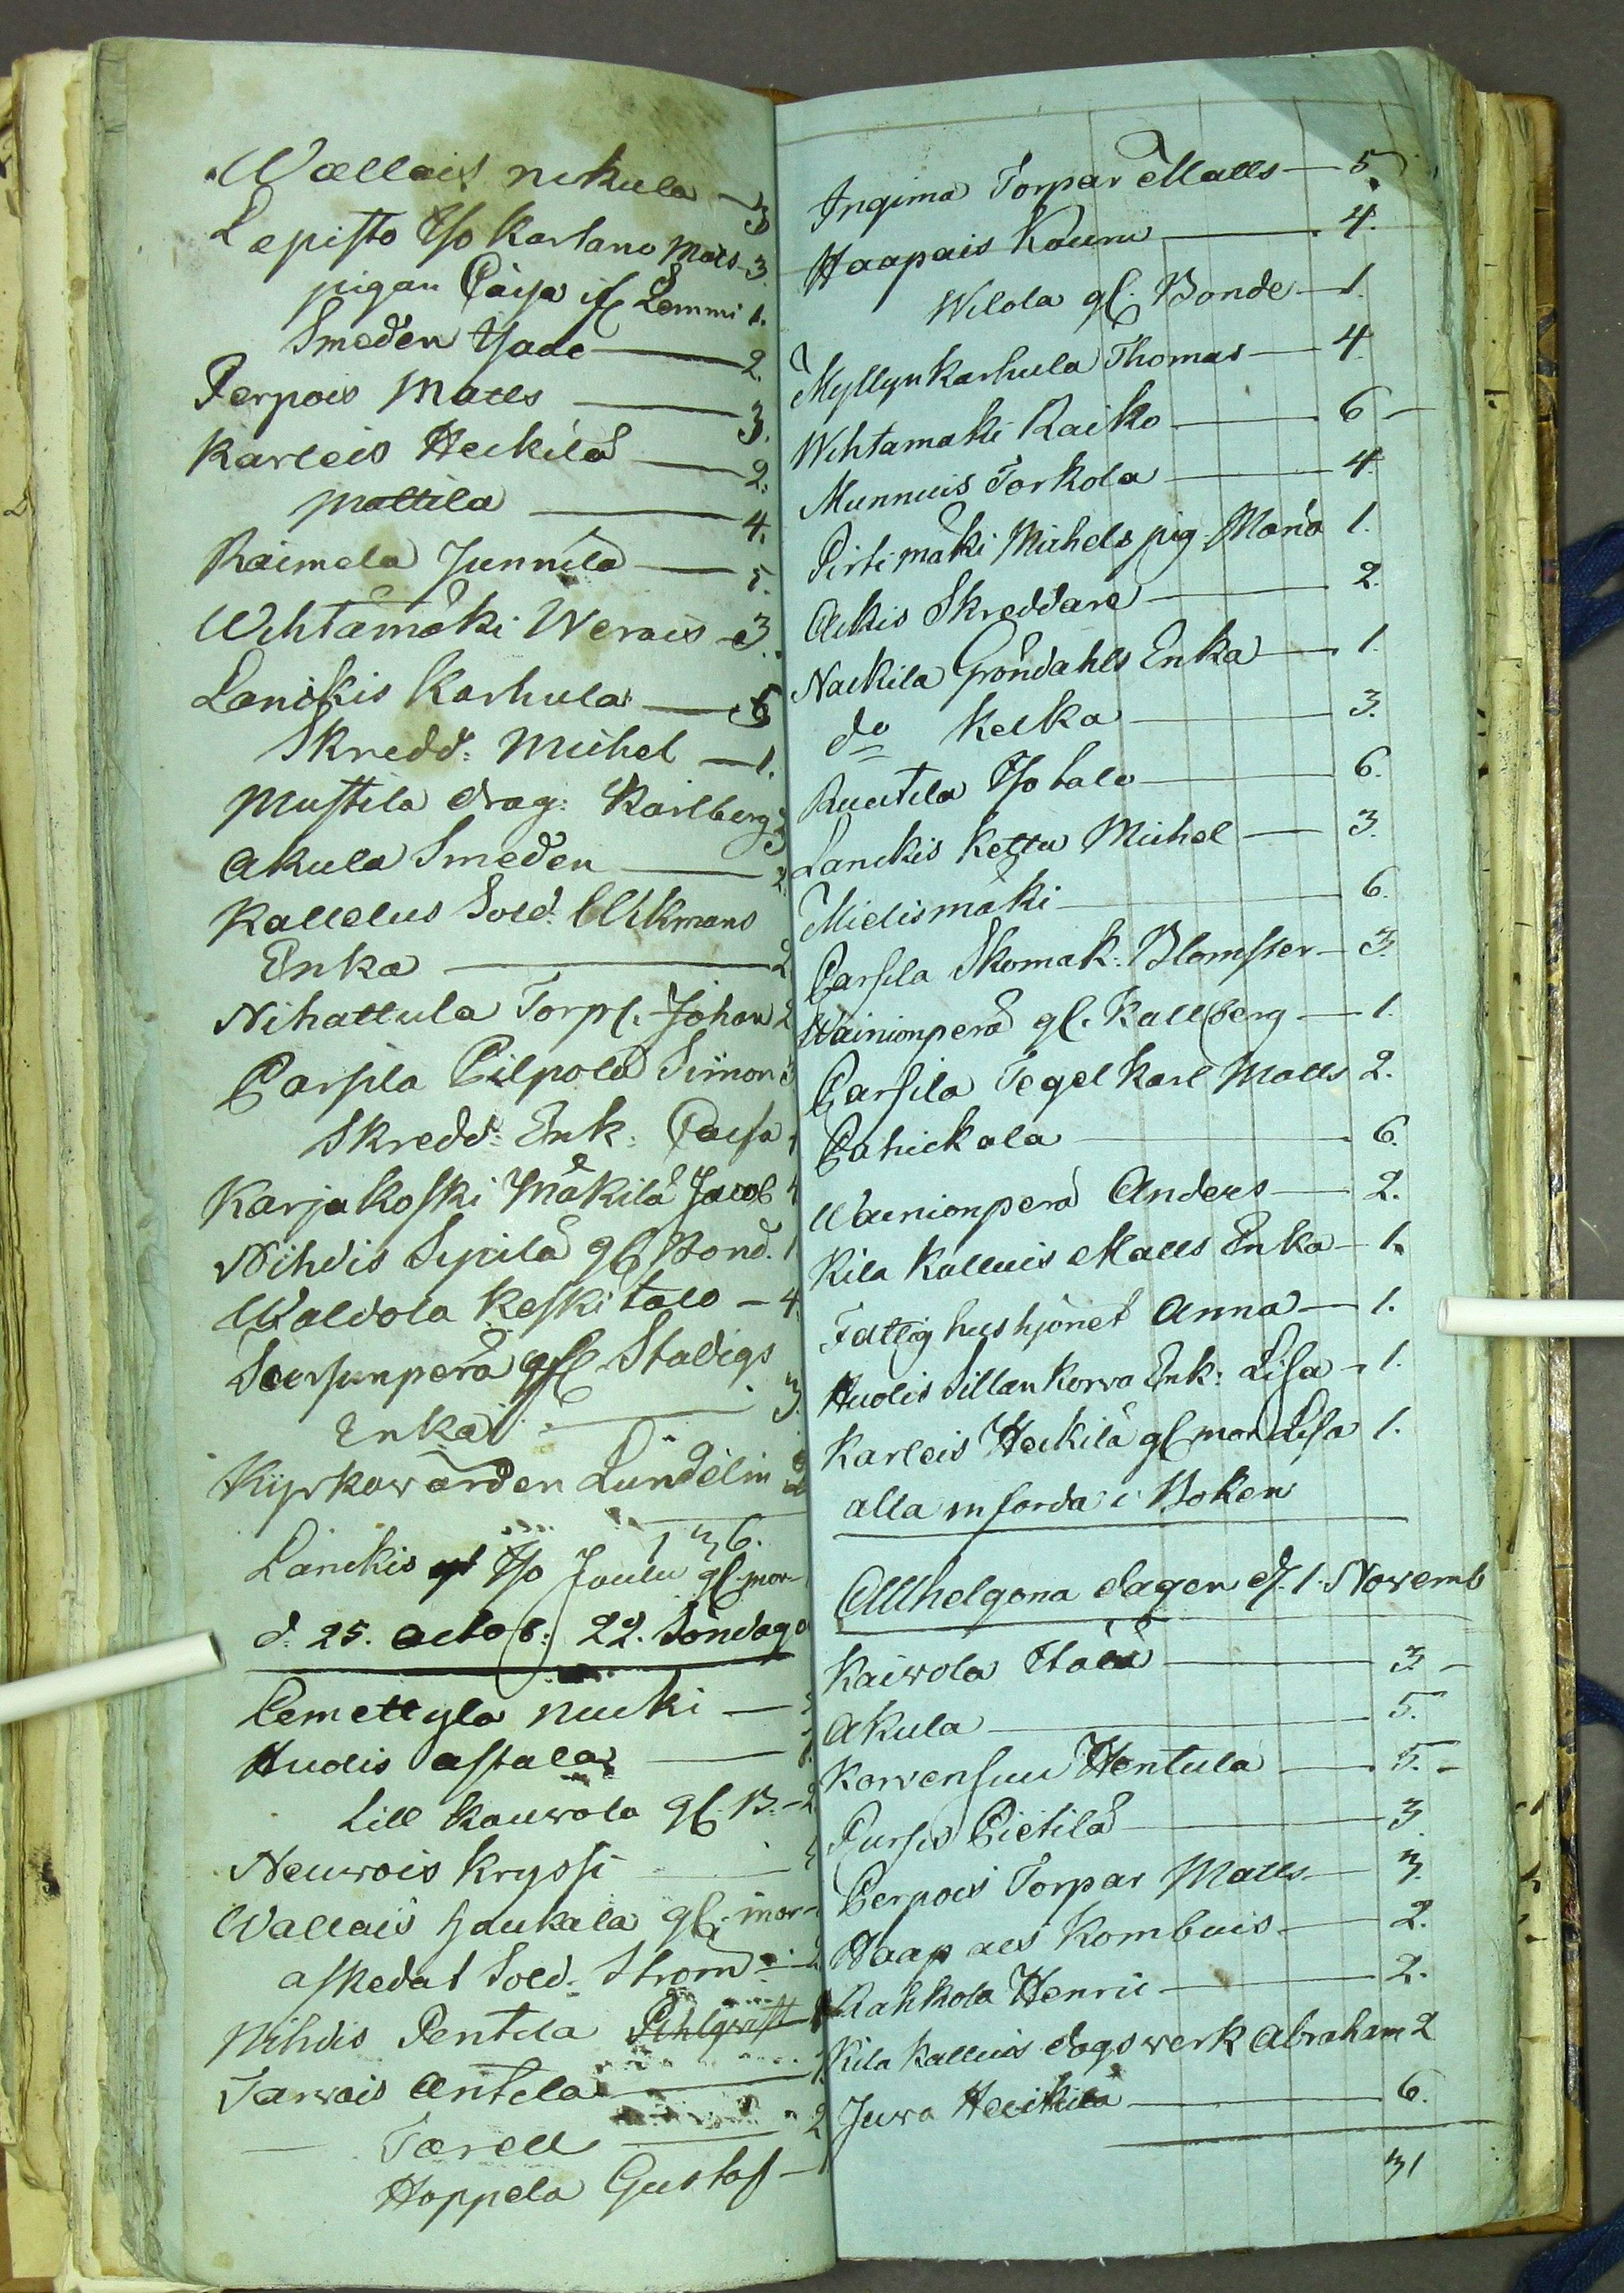 Wallais nikula — 3
Lepisto Iso Kartano Mats 3.
pigan Caisa if Lemmi 1.
Smeden Isaac — 2.
Perpois Matts — 3.
Karleis Heikilä — 2.
Mattila — 4.
Raimela Junnila — 5.
Wihtamäki Werais — 3.
Lanckis Karhula — 5
Skredd: Michel — 1.
Mustila drag: Karlberg 3
Akula Smeden — 2.
Kallelus Sold:
Enka — 2
Nihattula Torp. Johan 2
Parsila Pilpola Simon 3
Skredd: Enk: Caisa 1
Karjakoski Mäkilä Jacob 4
Nihdis Sypilä gl Bond. 1
Waldola Keskitalo — 4.
gl Stadigs
Enka — 3.
Kyrkowärden Lundelin 2
136.
Lanckis Iso Joulu gl. mor-
d. 25. octob: 22. Söndag
Pemettylä nucki —
Hudis astala —
Lill Kauwola gl. B. — 2
Neuwois Kryssi —
Wallais Haukala gl. mor-
afskedat Sold. Ström — 2
Nihdis Pentila Pihlqwist 1
Jarwais Antila — 1.
Tarell — 2
Hoppela Gustaf — 1
Ingima Torpar Matts — 5.
Haapais Kauru — 4.
Wilola gl. Bonde — 1.
Myllynkarhula Thomas — 4.
Wihtamäki Raiko — 6 —
Munnuis Torkola — 4.
Pirtimäki Michels pig. Maria 1.
Ackis Skreddare — 2.
Nackila Gröndahls Enka — 1.
do Kelka — 3.
Ruutila Iso talo — 6.
Lanckis Kettu Michel — 3.
Mielismäki — 6.
Parsila Skomak: Blomster — 3.
Wainionperä gl. Kallberg — 1.
Parsila Tegelkarl Matts 2.
Pahickala — 6.
Wainionperä Anders — 2.
Kila Kalluis Matts Enka — 1.
Fattighushjonet Anna — 1.
Hudis Sillankorwa Enk: Lisa — 1.
Karleis Heikilä gl mor Lisa 1.
alla införda i Boken
Allhelgona dagen d. 1. Novemb
Kaiwola — 3 —
Akula — 5.
Korvensuu Hentula — 5. —
Pursis Pietilä — 3
Perpois Torpar Matts — 3.
Haapaes Kombuis — 2.
Rahkola Henric — 2.
Kila Kalluis dagswerk Abraham 2
Juva Heikkilä — 6.
31